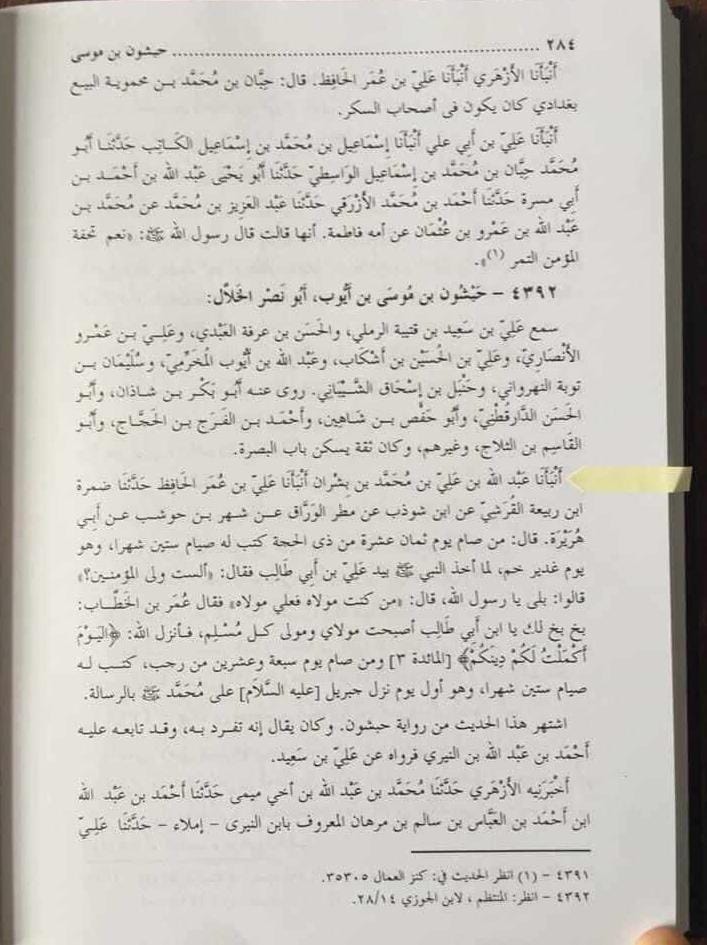 ٢٨٤ ........................................ حبشون بن موسى
أَنْبَأَنَا الأَزْهَرِي أَنْبَأَنَا عَلِيّ بن عُمَر الحَافِظ. قال: حِبَّان بن مُحَمَّد بـن محموية البيع
بغدادي كان يكون فى أصحاب السكر.
أَنْبَأَنَا عَلِيّ بن أَبِي علي أَنْبَأَنَا إِسْمَاعِيل بن مُحَمَّد بن إِسْمَاعِيل الكَـاتِب حَدَّثَنَـا أَبُو
مُحَمَّد حِبَّان بن مُحَمَّد بن إِسْمَاعِيل الوَاسِطِيّ حَدَّثَنَا أَبُو يَحْيَى عَبْد الله بن أَحْمَـد بـن
أَبِي مسرة حَدَّثَنَا أَحْمَد بن مُحَمَّد الأَزْرَقي حَدَّثَنَا عَبْد العَزِيز بن مُحَمَّد عن مُحَمَّد بن
عَبْد الله بن عَمْرو بن عُثْمَان عن أمه فاطمة. أنها قالت قال رسول الله ﷺ: «نعم تحفة
المؤمن التمر (١)».
٤٣٩٢ - حَبْشُون بن مُوسَى بن أَيُّوب، أَبُو نَصْر الخَلاَّل:
سمع عَلِيّ بن سَعِيد بن قتيبة الرملي، والحَسَن بن عرفة العَبْدي، وعَلِـيّ بـن عَمْـرو
الأَنْصَارِيّ، وعَلِيّ بن الحُسَيْن بن أَشْكَاب، وعَبْد الله بن أَيُّوب المُخَرِّمِيّ، وسُلَيْمَان بـن
توبة النهرواني، وحَنْبَل بن إِسْحَاق الشَّـيْبَانِي. روى عنـه أَبُـو بَكْـر بـن شـاذان، وأَبُـو
الحَسَن الدَّارقُطْنِيّ، وأَبُو حَفْص بـن شـاهين، وأَحْمَـد بـن الفَـرَج بـن الحَجَّـاج، وأَبُـو
القَاسِم بن الثلاج، وغيرهم، وكان ثقة يسكن باب البصرة.
أَنْبَأَنَا عَبْد الله بن عَلِيّ بن مُحَمَّد بن بِشْران أَنْبَأَنَا عَلِيّ بن عُمَر الحَافِظ حَدَّثَنَا ضمرة
ابن ربيعة القُرَشِيّ عن ابن شوذب عن مطر الوَرَّاق عـن شـهر بـن حوشـب عن أَبِـي
هُرَيْرَة. قال: من صام يوم ثمان عشرة من ذى الحجة كتب له صيام ستين شهرا، وهو
يوم غدير خم، لما أخذ النبي ﷺ بيد عَلِيّ بن أَبِي طَالِب فقال: «ألست ولى المؤمنـين؟»
قالوا: بلى يا رسول الله، قال: «من كنت مولاه فعلي مولاه» فقال عُمَر بن الخَطَّـاب:
بخ بخ لك يا ابن أَبِي طَالِب أصبحت مولاي ومولى كـل مُسْـلِم، فـأنزل الله: ﴿اليَـوْمَ
أَكْمَلْتُ لَكُمْ دِينَكُمْ﴾ [المائدة ٣] ومن صام يوم سبعة وعشرين من رجب، كتـب لـه
صيام ستين شهرا، وهو أول يوم نزل جبريل [عليه السَّلاَم] على مُحَمَّد ﷺ بالرسالة.
اشتهر هذا الحديث من رواية حبشون. وكان يقال إنه تفـرد بـه، وقـد تابعـه عليـه
أَحْمَد بن عَبْد الله بن النيري فرواه عن عَلِيّ بن سَعِيد.
أَخْبَرَنِيه الأَزْهَري حَدَّثَنَا مُحَمَّد بن عَبْد الله بن أخي ميمى حَدَّثَنَا أَحْمَد بن عَبْد الله
ابن أَحْمَد بن العَبَّاس بن سالم بن مرهان المعروف بابن النيرى - إملاء - حَدَّثَنَا عَلِيّ
٤٣٩١ - (١) انظر الحديث في: كنز العمال ٣٥٣٠٥.
٤٣٩٢ - انظر: المنتظم ، لابن الجوزي ٢٨/١٤.